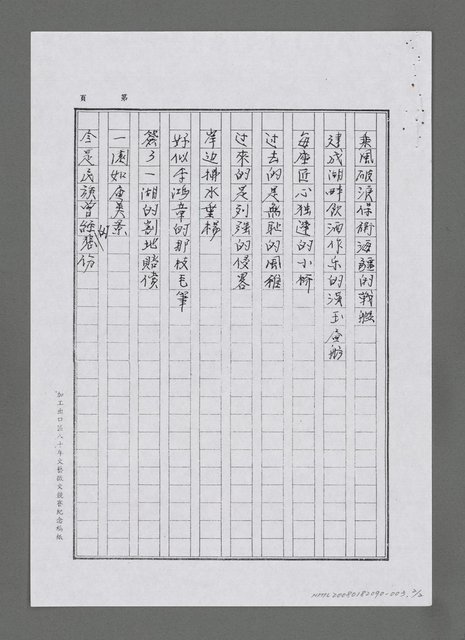 第　頁
乘風破浪保衛海疆的戰艦
建成湖畔飲酒作乐的漢玉画舫
每座匠心独運的小桥
过去的是無恥的風雅
过來的是列強的侵畧
岸边拂水垂楊
好似李鴻章的那枝毛筆
簽了一湖的割地賠償
一園如画美景
全是民族曾經的
加工出口區八十年文藝散文競賽紀念稿紙
HMTL20080182090-003, 2/2